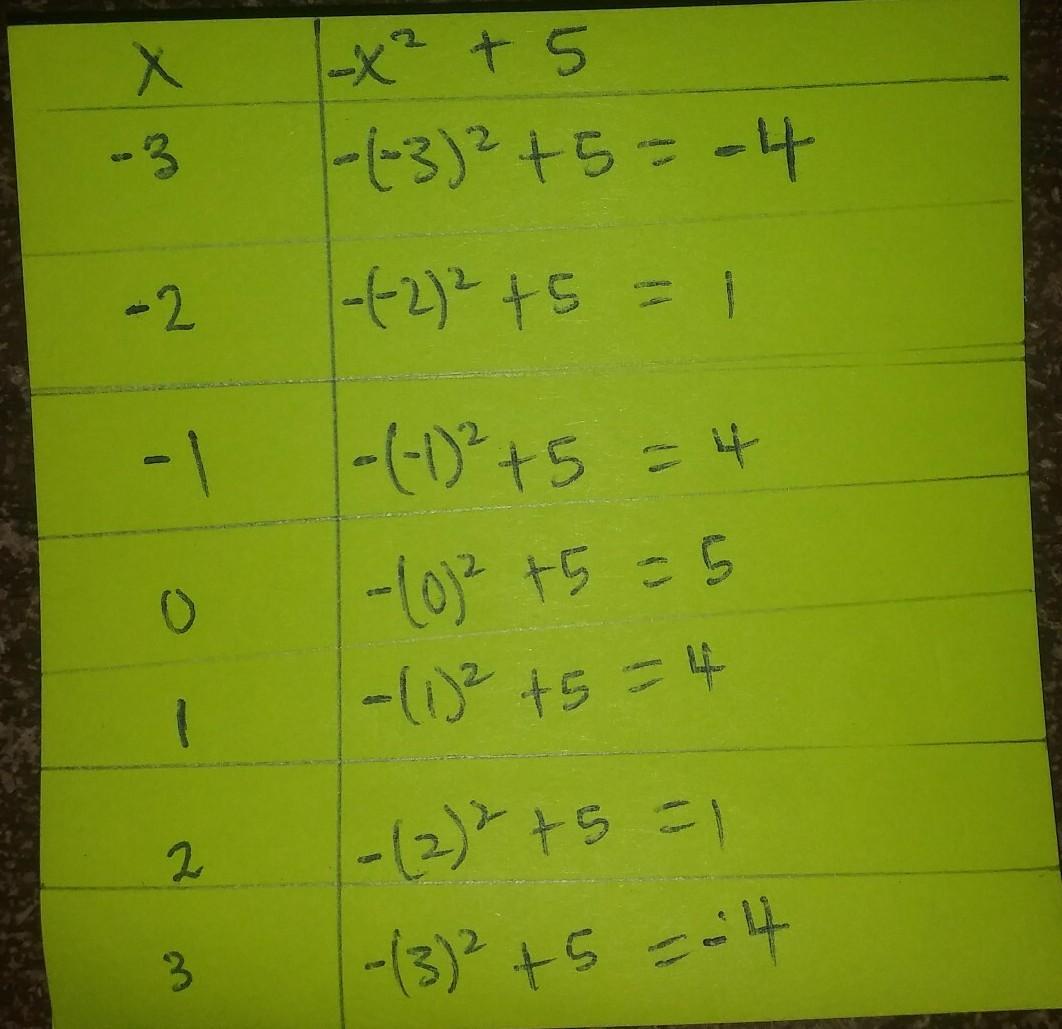 x -x² + 5
-3 -(-3)² + 5 = -4
-2 -(-2)² + 5 = 1
-1 -(-1)² + 5 = 4
0 -(0)² + 5 = 5
1 -(1)² + 5 = 4
2 -(2)² + 5 = 1
3 -(3)² + 5 = -4